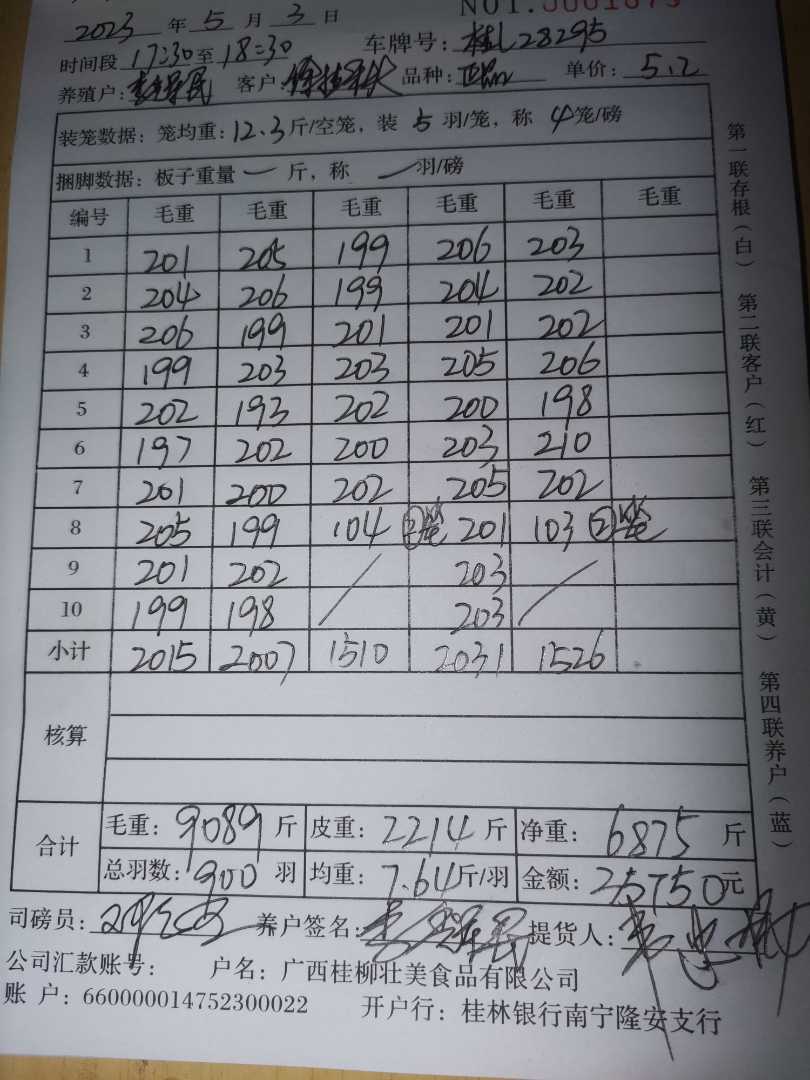 NO1.0001679
2023 年 5 月 3 日
时间段 17:30 至 18:30 车牌号: 桂L28295
养殖户: 客户: 品种: 正品 单价: 5.2
装笼数据: 笼均重: 12.3 斤/空笼, 装 5 羽/笼, 称 4 笼/磅
捆脚数据: 板子重量 一 斤, 称 一 羽/磅
编号 毛重 毛重 毛重 毛重 毛重 毛重
1 201 205 199 206 203
2 204 206 199 204 202
3 206 199 201 201 202
4 199 203 203 205 206
5 202 193 202 200 198
6 197 202 200 203 210
7 201 200 202 205 202
8 205 199 104 ②笼 201 103 ②笼
9 201 202 / 203 /
10 199 198 203
小计 2015 2007 1510 2031 1526
核算
合计
毛重: 9089 斤 皮重: 2214 斤 净重: 6875 斤
总羽数: 900 羽 均重: 7.64 斤/羽 金额: 35750 元
司磅员: 养户签名: 提货人:
公司汇款账号: 户名: 广西桂柳壮美食品有限公司
账 户: 660000014752300022 开户行: 桂林银行南宁隆安支行
第一联存根(白) 第二联客户(红) 第三联会计(黄) 第四联养户(蓝)